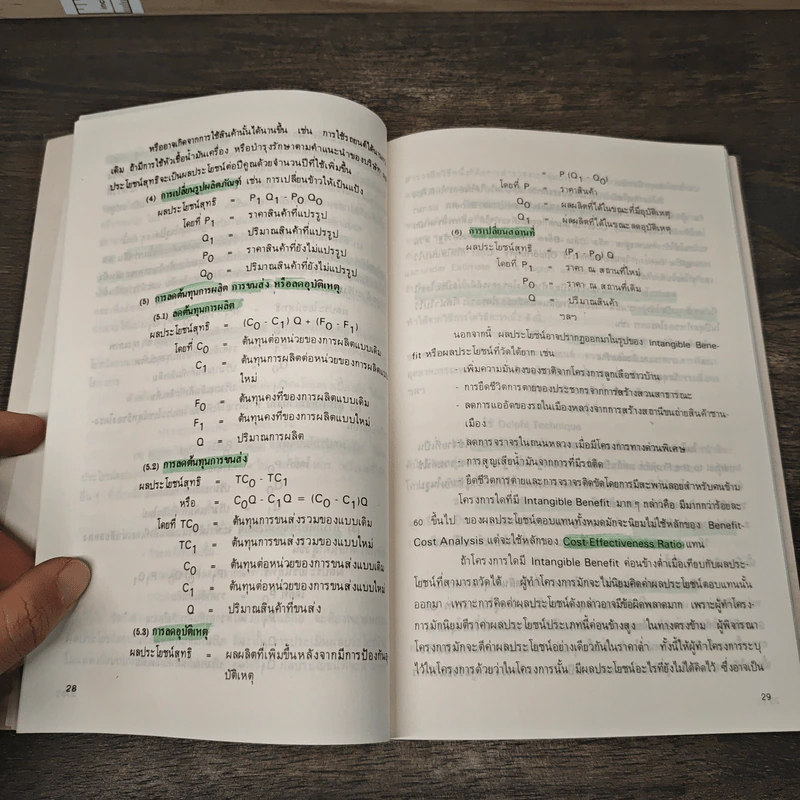 หรืออาจเกิดจากการใช้สินค้านั้นได้นานขึ้น เช่น การใช้รถยนต์ได้นาน
เดิม ถ้ามีการใช้หัวเชื้อน้ำมันเครื่อง หรือบำรุงรักษาตามคำแนะนำของบริษัท
ประโยชน์สุทธิจะเป็นผลประโยชน์ต่อปีคูณด้วยจำนวนปีที่ใช้เพิ่มขึ้น
(4) การเปลี่ยนรูปผลิตภัณฑ์ เช่น การเปลี่ยนข้าวให้เป็นแป้ง
ผลประโยชน์สุทธิ = P1 Q1 - P0 Q0
โดยที่ P1 = ราคาสินค้าที่แปรรูป
Q1 = ปริมาณสินค้าที่แปรรูป
P0 = ราคาสินค้าที่ยังไม่แปรรูป
Q0 = ปริมาณสินค้าที่ยังไม่แปรรูป
(5) การลดต้นทุนการผลิต การขนส่ง หรือลดอุบัติเหตุ
(5.1) ลดต้นทุนการผลิต
ผลประโยชน์สุทธิ = (C0 - C1) Q + (F0 - F1)
โดยที่ C0 = ต้นทุนต่อหน่วยของการผลิตแบบเดิม
C1 = ต้นทุนการผลิตต่อหน่วยของการผลิตแบบ
ใหม่
F0 = ต้นทุนคงที่ของการผลิตแบบเดิม
F1 = ต้นทุนคงที่ของการผลิตแบบใหม่
Q = ปริมาณการผลิต
(5.2) การลดต้นทุนการขนส่ง
ผลประโยชน์สุทธิ = TC0 - TC1
หรือ = C0Q - C1Q = (C0 - C1)Q
โดยที่ TC0 = ต้นทุนการขนส่งรวมของแบบเดิม
TC1 = ต้นทุนการขนส่งรวมของแบบใหม่
C0 = ต้นทุนต่อหน่วยของการขนส่งแบบเดิม
C1 = ต้นทุนต่อหน่วยของการขนส่งแบบใหม่
Q = ปริมาณสินค้าที่ขนส่ง
(5.3) การลดอุบัติเหตุ
ผลประโยชน์สุทธิ = ผลผลิตที่เพิ่มขึ้นหลังจากมีการป้องกัน
บัติเหตุ
28
= P (Q1 - Q0)
โดยที่ P = ราคาสินค้า
Q0 = ผลผลิตที่ได้ในขณะที่มีอุบัติเหตุ
Q1 = ผลผลิตที่ได้ในขณะลดอุบัติเหตุ
(6) การเปลี่ยนสถานที่
ผลประโยชน์สุทธิ = (P1 - P0) Q
โดยที่ P1 = ราคา ณ สถานที่ใหม่
P0 = ราคา ณ สถานที่เดิม
Q = ปริมาณสินค้า
ฯลฯ
นอกจากนี้ ผลประโยชน์อาจปรากฏออกมาในรูปของ Intangible Bene-
fit หรือผลประโยชน์ที่วัดได้ยาก เช่น
- เพิ่มความมั่นคงของชาติจากโครงการลูกเสือชาวบ้าน
- การยืดชีวิตการตายของประชากรจากการสร้างสวนสาธารณะ
- ลดการแออัดของรถในเมืองหลวงจากการสร้างสถานีขนถ่ายสินค้าชาน-
เมือง
- ลดการจราจรในถนนหลวง เมื่อมีโครงการทางด่วนพิเศษ
- การสูญเสียน้ำมันจากการที่มีรถติด
- ยืดชีวิตการตายและการจราจรติดขัดโดยการมีสะพานลอยสำหรับคนข้าม
โครงการใดที่มี Intangible Benefit มาก ๆ กล่าวคือ มีมากกว่าร้อยละ
60 ขึ้นไป ของผลประโยชน์ตอบแทนทั้งหมดมักจะนิยมไม่ใช้หลักของ Benefit-
Cost Analysis แต่จะใช้หลักของ Cost-Effectiveness Ratio แทน
ถ้าโครงการใดมี Intangible Benefit ค่อนข้างต่ำเมื่อเทียบกับผลประ-
โยชน์ที่สามารถวัดได้ ผู้ทำโครงการมักจะไม่นิยมคิดค่าผลประโยชน์ตอบแทนนั้น
ออกมา เพราะการคิดค่าผลประโยชน์ดังกล่าวอาจมีข้อผิดพลาดมาก เพราะผู้ทำโครง-
การมักนิยมตีราคาผลประโยชน์ประเภทนี้ค่อนข้างสูง ในทางตรงข้าม ผู้พิจารณา
โครงการมักจะตีค่าผลประโยชน์อย่างเดียวกันในราคาต่ำ ทั้งนี้ให้ผู้ทำโครงการระบุ
ไว้ในโครงการด้วยว่าในโครงการนั้น มีผลประโยชน์อะไรที่ยังไม่ได้คิดไว้ ซึ่งอาจเป็น
29